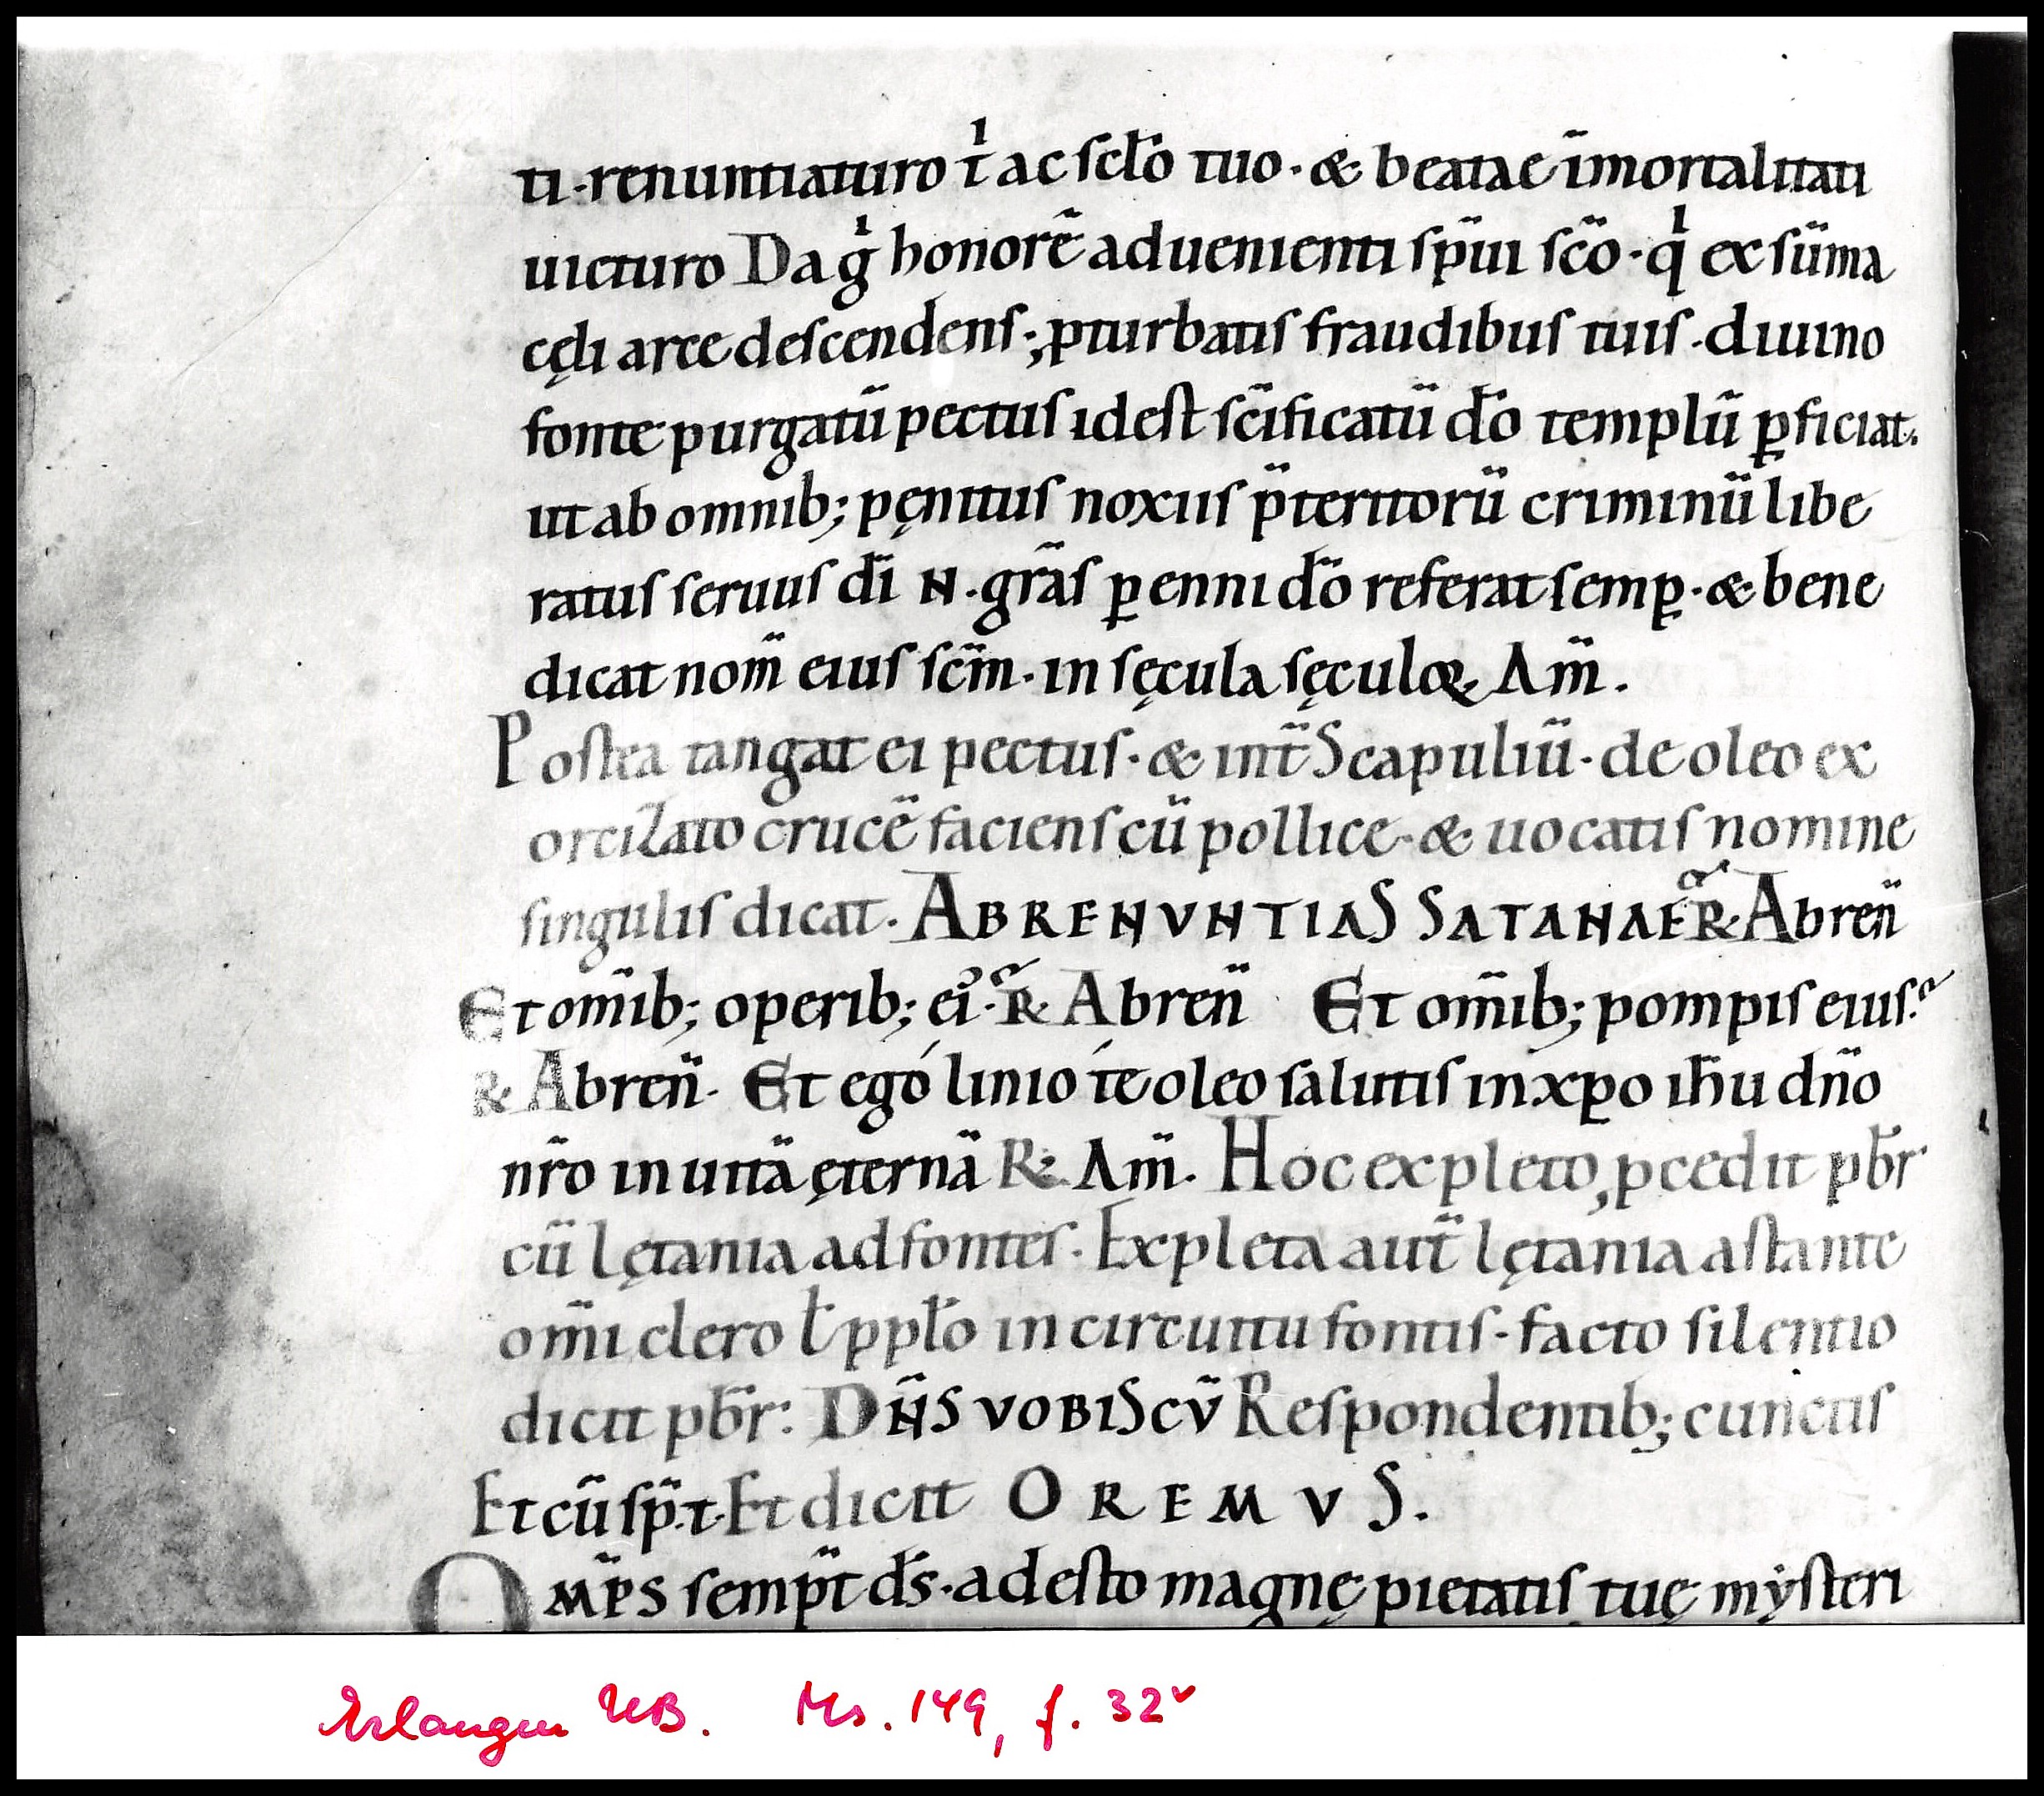 ti·renuntiaturo tͥ ac sc̄lo tuo·& beatae īmortalitati
uicturo Da gͥ honorē aduenienti sp̄ui sc̄o·qͥ ex sūma
cęli arce descendens·; p̱turbatis fraudibus tuis·diuino
fonte purgatū pectus id est sc̄ificatū dō templū p̱ficiat.
ut ab omnib; pęnitus noxiis p̄teritorū criminū libe
ratus seruus dī N·gr̄as p̱enni dō referat semp̱·& bene
dicat nom̄ eius sc̄m·in sęcula sęculoꝝ Am̄.
Postea tangat ei pectus·& int̄ Scapuliū·de oleo ex
orcizato crucē faciens cū pollice·& uocatis nomine
singulis dicat·ABRENVNTIAS SATANAE ℟·Abreǹ̄
Et om̄ib; operib; ei᾽·℟·Abren̄ Et om̄ib; pompis eius·
℟ Abren̄·Et egó linio té oleo salutis in xp̄o ih̄u dn̄o
nr̄o in uitā ęternā ℟·Am̄. Hoc expleto, ꝓcedit pb̄r
cū lętania ad fontes·Expleta aut̄ lętania astante
om̄i clero ł ppl̄o in circuitu fontis·facto silentio
dicit pb̄r: DN̄S VOBISCV̄ Respondentib; cunctis
Et cū sp̄·t·Et dicit OREMVS.
OMP̄S semp̄t ds̄·adesto magnę pietatis tuę mẏsteri
Erlangen UB. Ms. 149, f. 32ᵛ